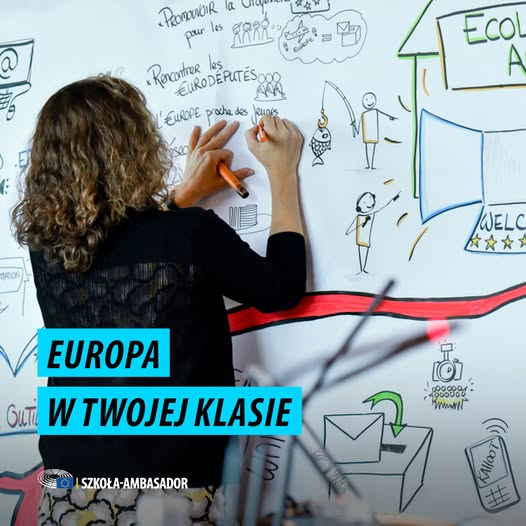 Promouvoir la Citoyenneté
pour les
Rencontrer les
EURODÉPUTÉS
L'EUROPE proche des jeunes
@
ECOL
A
WELC
KAHOOT
EUROPA
W TWOJEJ KLASIE
SZKOŁA-AMBASADOR